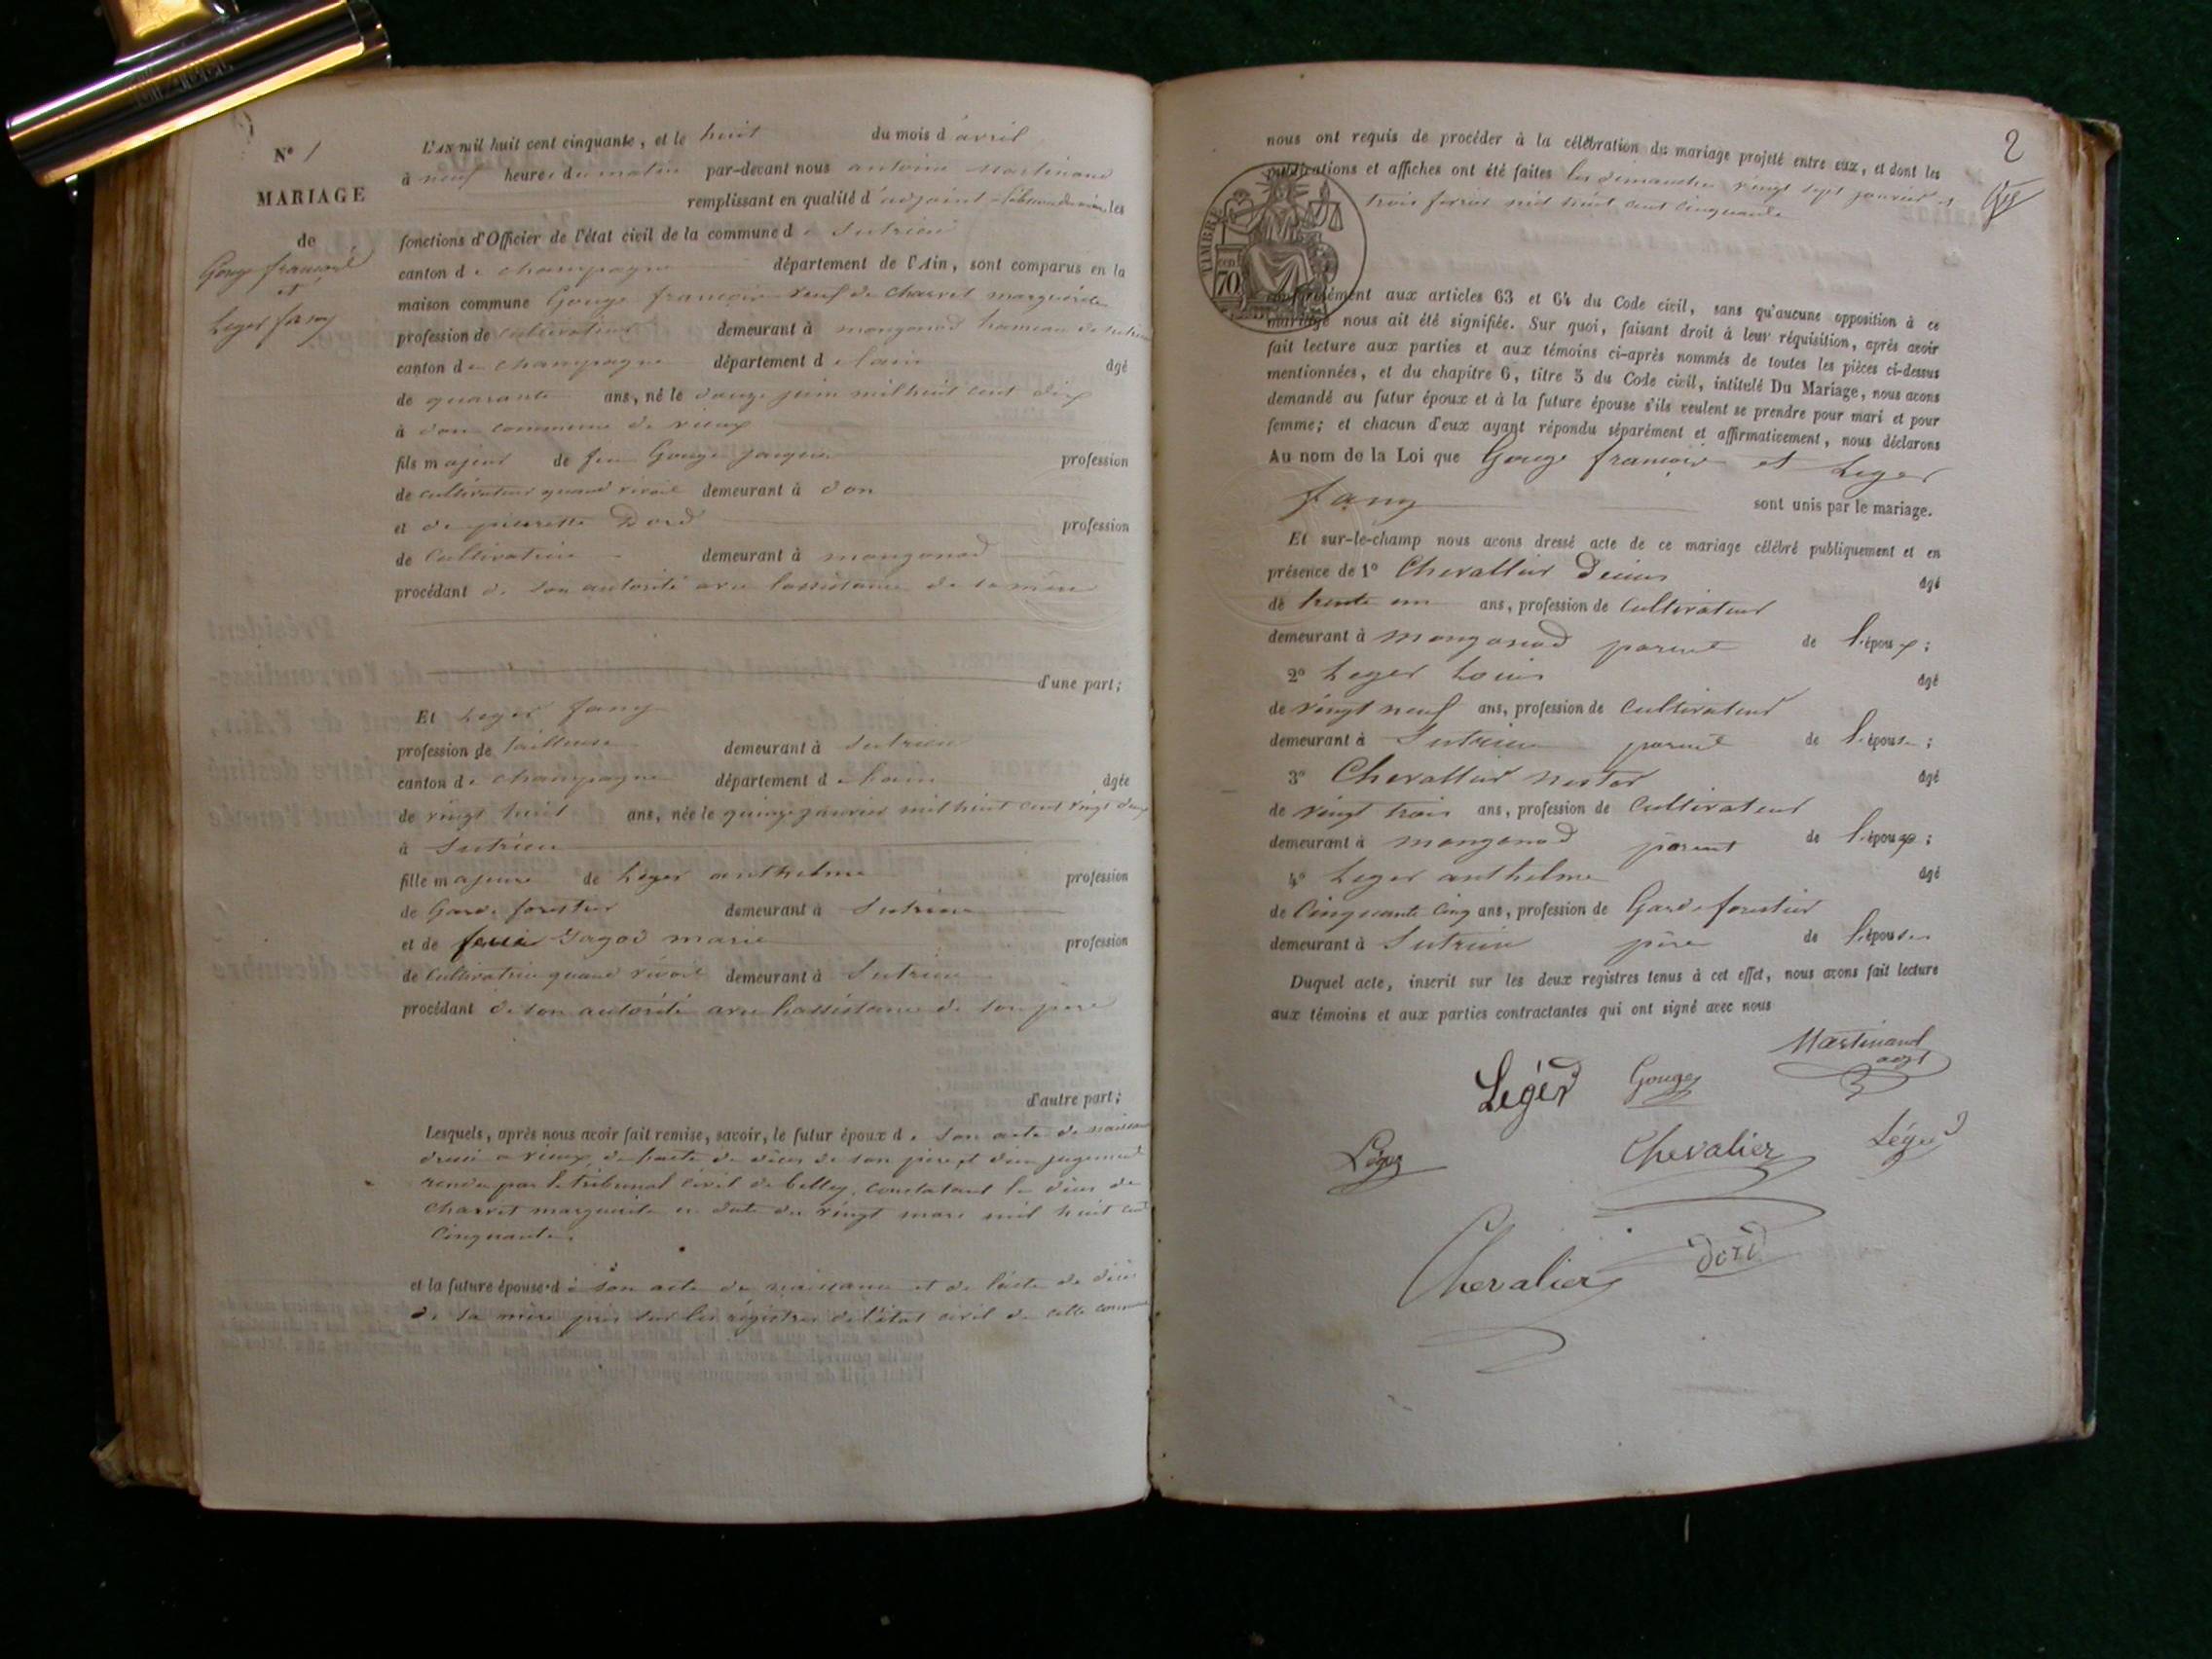 N° 1
MARIAGE
de
Gouge françois
et
Leger fany
L'AN mil huit cent cinquante, et le huit du mois d'avril
à neuf heures du matin par-devant nous antoine Martinand
remplissant en qualité d'adjoint les
fonctions d'Officier de l'état civil de la commune de Sutrieu
canton de champagne département de l'Ain, sont comparus en la
maison commune Gouge françois veuf de Charvet marguerite
profession de cultivateur demeurant à mongonod hameau de sutrieu
canton de champagne département de lain âgé
de quarante ans, né le douze juin mil huit cent dix
à don commune de vieux
fils majeur de feu Gouge jacques profession
de cultivateur quand vivoit demeurant à don
et de pierrette Dord profession
de Cultivatrice demeurant à mongonod
procédant de son autorité avec lassistance de sa mère
d'une part;
Et Leger fany
profession de tailleuse demeurant à Sutrieu
canton de champagne département de lain âgée
de vingt huit ans, née le quinze janvier mil huit cent vingt deux
à Sutrieu
fille majeure de Leger anthelme profession
de Garde forestier demeurant à Sutrieu
et de feue Jagod marie profession
de Cultivatrice quand vivoit demeurant à Sutrieu
procédant de son autorité avec lassistance de son père
d'autre part;
Lesquels, après nous avoir fait remise, savoir, le futur époux de son acte de naissance
dressé a vieux, de lacte de déces de son père et d'un jugement
rendu par le tribunal civil de belley, constatant le déces de
Charvet marguerite en date du vingt mars mil huit cent
Cinquante.
et la future épouse de son acte de naissance et de lacte de déces
de sa mère pris sur les régistres de l'état civil de cette commune
2
nous ont requis de procéder à la célébration du mariage projeté entre eux, et dont les
publications et affiches ont été faites les dimanches vingt sept janvier et
trois fevrier mil huit cent cinquante
TIMBRE
70
conformément aux articles 63 et 64 du Code civil, sans qu'aucune opposition à ce
mariage nous ait été signifiée. Sur quoi, faisant droit à leur réquisition, après avoir
fait lecture aux parties et aux témoins ci-après nommés de toutes les pièces ci-dessus
mentionnées, et du chapitre 6, titre 5 du Code civil, intitulé Du Mariage, nous avons
demandé au futur époux et à la future épouse s'ils veulent se prendre pour mari et pour
femme; et chacun d'eux ayant répondu séparément et affirmativement, nous déclarons
Au nom de la Loi que Gouge françois et Leger
fany sont unis par le mariage.
Et sur-le-champ nous avons dressé acte de ce mariage célébré publiquement et en
présence de 1° Chevallier Denis âgé
de trente un ans, profession de Cultivateur
demeurant à mongonod parent de l'époux;
2° Leger Louis âgé
de vingt neuf ans, profession de Cultivateur
demeurant à Sutrieu parent de l'épouse;
3° Chevallier nestor âgé
de vingt trois ans, profession de Cultivateur
demeurant à mongonod parent de l'époux;
4° Leger anthelme âgé
de Cinquante Cinq ans, profession de Garde forestier
demeurant à Sutrieu père de l'épouse
Duquel acte, inscrit sur les deux registres tenus à cet effet, nous avons fait lecture
aux témoins et aux parties contractantes qui ont signé avec nous
Martinand
adjt
Léger Gouge
Léger Chevalier Léger
Chevalier Dord